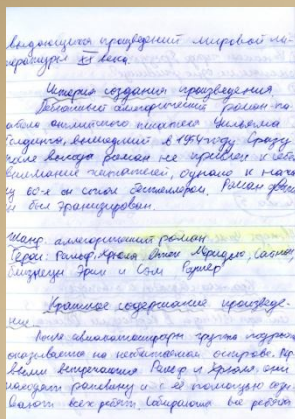 выдающихся произведений мировой ли-
тературы XX века.
История создания произведения
Дебютный аллегорический роман
английского писателя Уильяма
Голдинга, вышедший в 1954 году. Сразу
после выхода роман не привлёк к себе
внимание читателей, однако к нача
60-х он стал бестселлером. Роман
был экранизирован.
Жанр: аллегорический роман
Герои: Ральф, Хрюша, Джек Меридью, Саймон,
близнецы Эрик и Сэм, Роджер
Краткое содержание произведе-
ния
После авиакатастрофы группа подрост
оказывается на необитаемом острове.
выми встречаются Ральф и Хрюша, они
находят раковину и с её помощью
всех ребят. Собираются все ребята